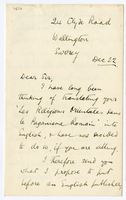 Clyde Road
Wallington
Surrey
Dec 22
Dear Sir,
I have long been
thinking of translating your
"Les Religions Orientales dans
le Paganisme Romain" into
English, & have now decided
to do so, if you are willing.
I therefore send you
what I propose to put
before an English publisher